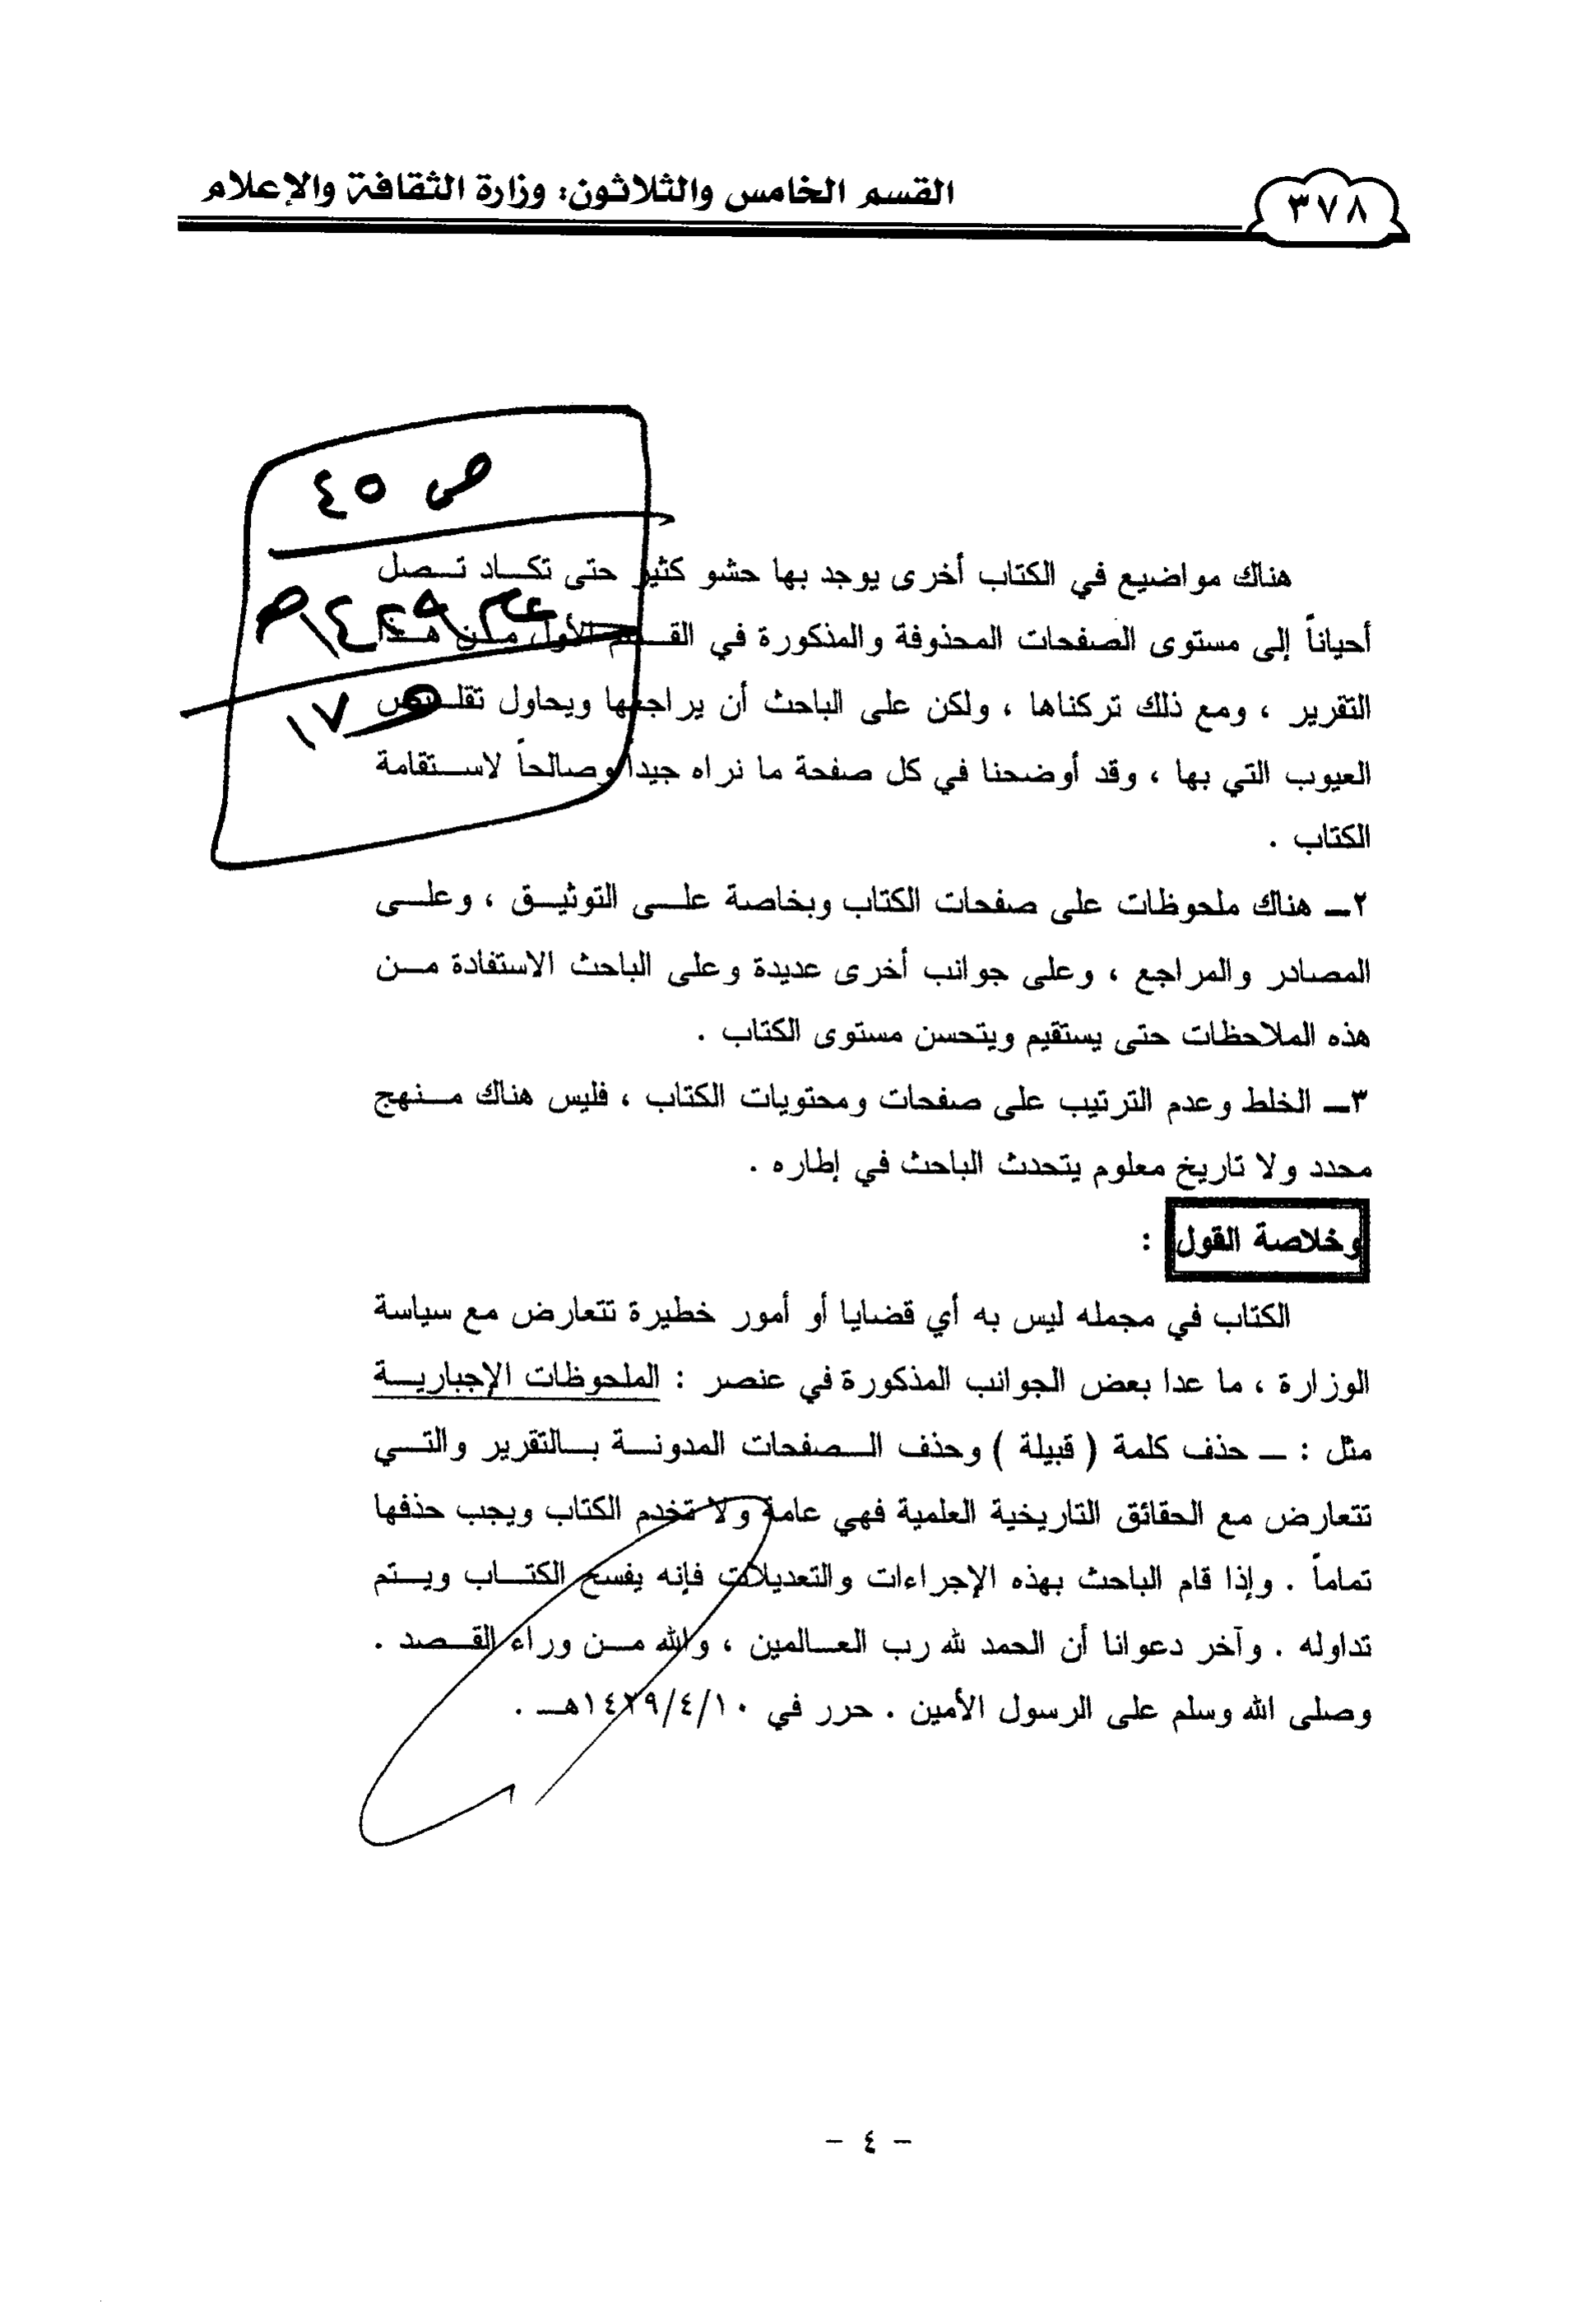 ٣٧٨
القسم الخامس والثلاثون: وزارة الثقافة والإعلام
ص ٤٥
عام ١٤٢٩هـ
ص ١٧
هناك مواضيع في الكتاب أخرى يوجد بها حشو كثير حتى تكاد تصل
أحياناً إلى مستوى الصفحات المحذوفة والمذكورة في القسم الأول من هذا
التقرير ، ومع ذلك تركناها ، ولكن على الباحث أن يراجعها ويحاول تقليص
العيوب التي بها ، وقد أوضحنا في كل صفحة ما نراه جيداً وصالحاً لاستقامة
الكتاب .
٢ــ هناك ملحوظات على صفحات الكتاب وبخاصة على التوثيق ، وعلى
المصادر والمراجع ، وعلى جوانب أخرى عديدة وعلى الباحث الاستفادة من
هذه الملاحظات حتى يستقيم ويتحسن مستوى الكتاب .
٣ــ الخلط وعدم الترتيب على صفحات ومحتويات الكتاب ، فليس هناك منهج
محدد ولا تاريخ معلوم يتحدث الباحث في إطاره .
وخلاصة القول :
الكتاب في مجمله ليس به أي قضايا أو أمور خطيرة تتعارض مع سياسة
الوزارة ، ما عدا بعض الجوانب المذكورة في عنصر : الملحوظات الإجبارية
مثل : ــ حذف كلمة ( قبيلة ) وحذف الصفحات المدونة بالتقرير والتي
تتعارض مع الحقائق التاريخية العلمية فهي عامة ولا تخدم الكتاب ويجب حذفها
تماماً . وإذا قام الباحث بهذه الإجراءات والتعديلات فإنه يفسح الكتاب ويتم
تداوله . وآخر دعوانا أن الحمد لله رب العالمين ، والله من وراء القصد .
وصلى الله وسلم على الرسول الأمين . حرر في ١٤٢٩/٤/١٠هـ .
- ٤ -